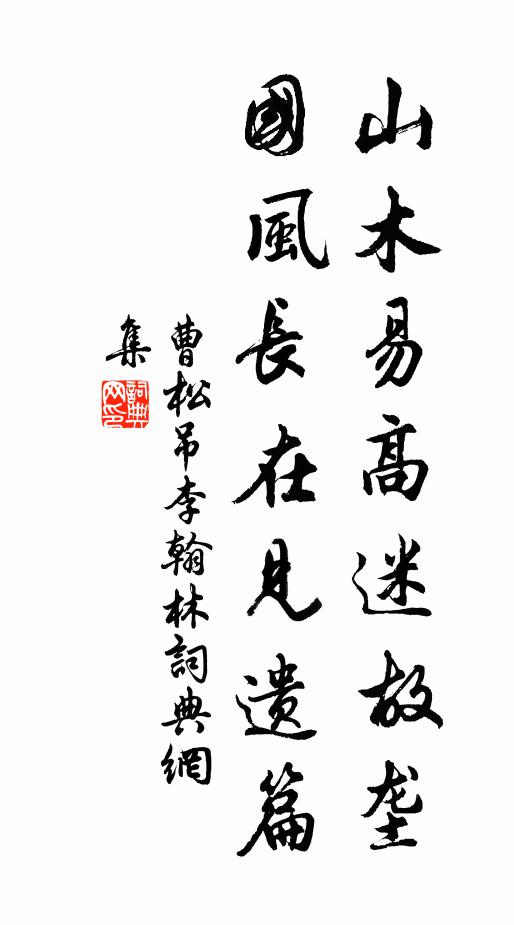 山木易高迷故垄
國風長在見遺篇
曹松吊李翰林詞典網
集
詞典
网印